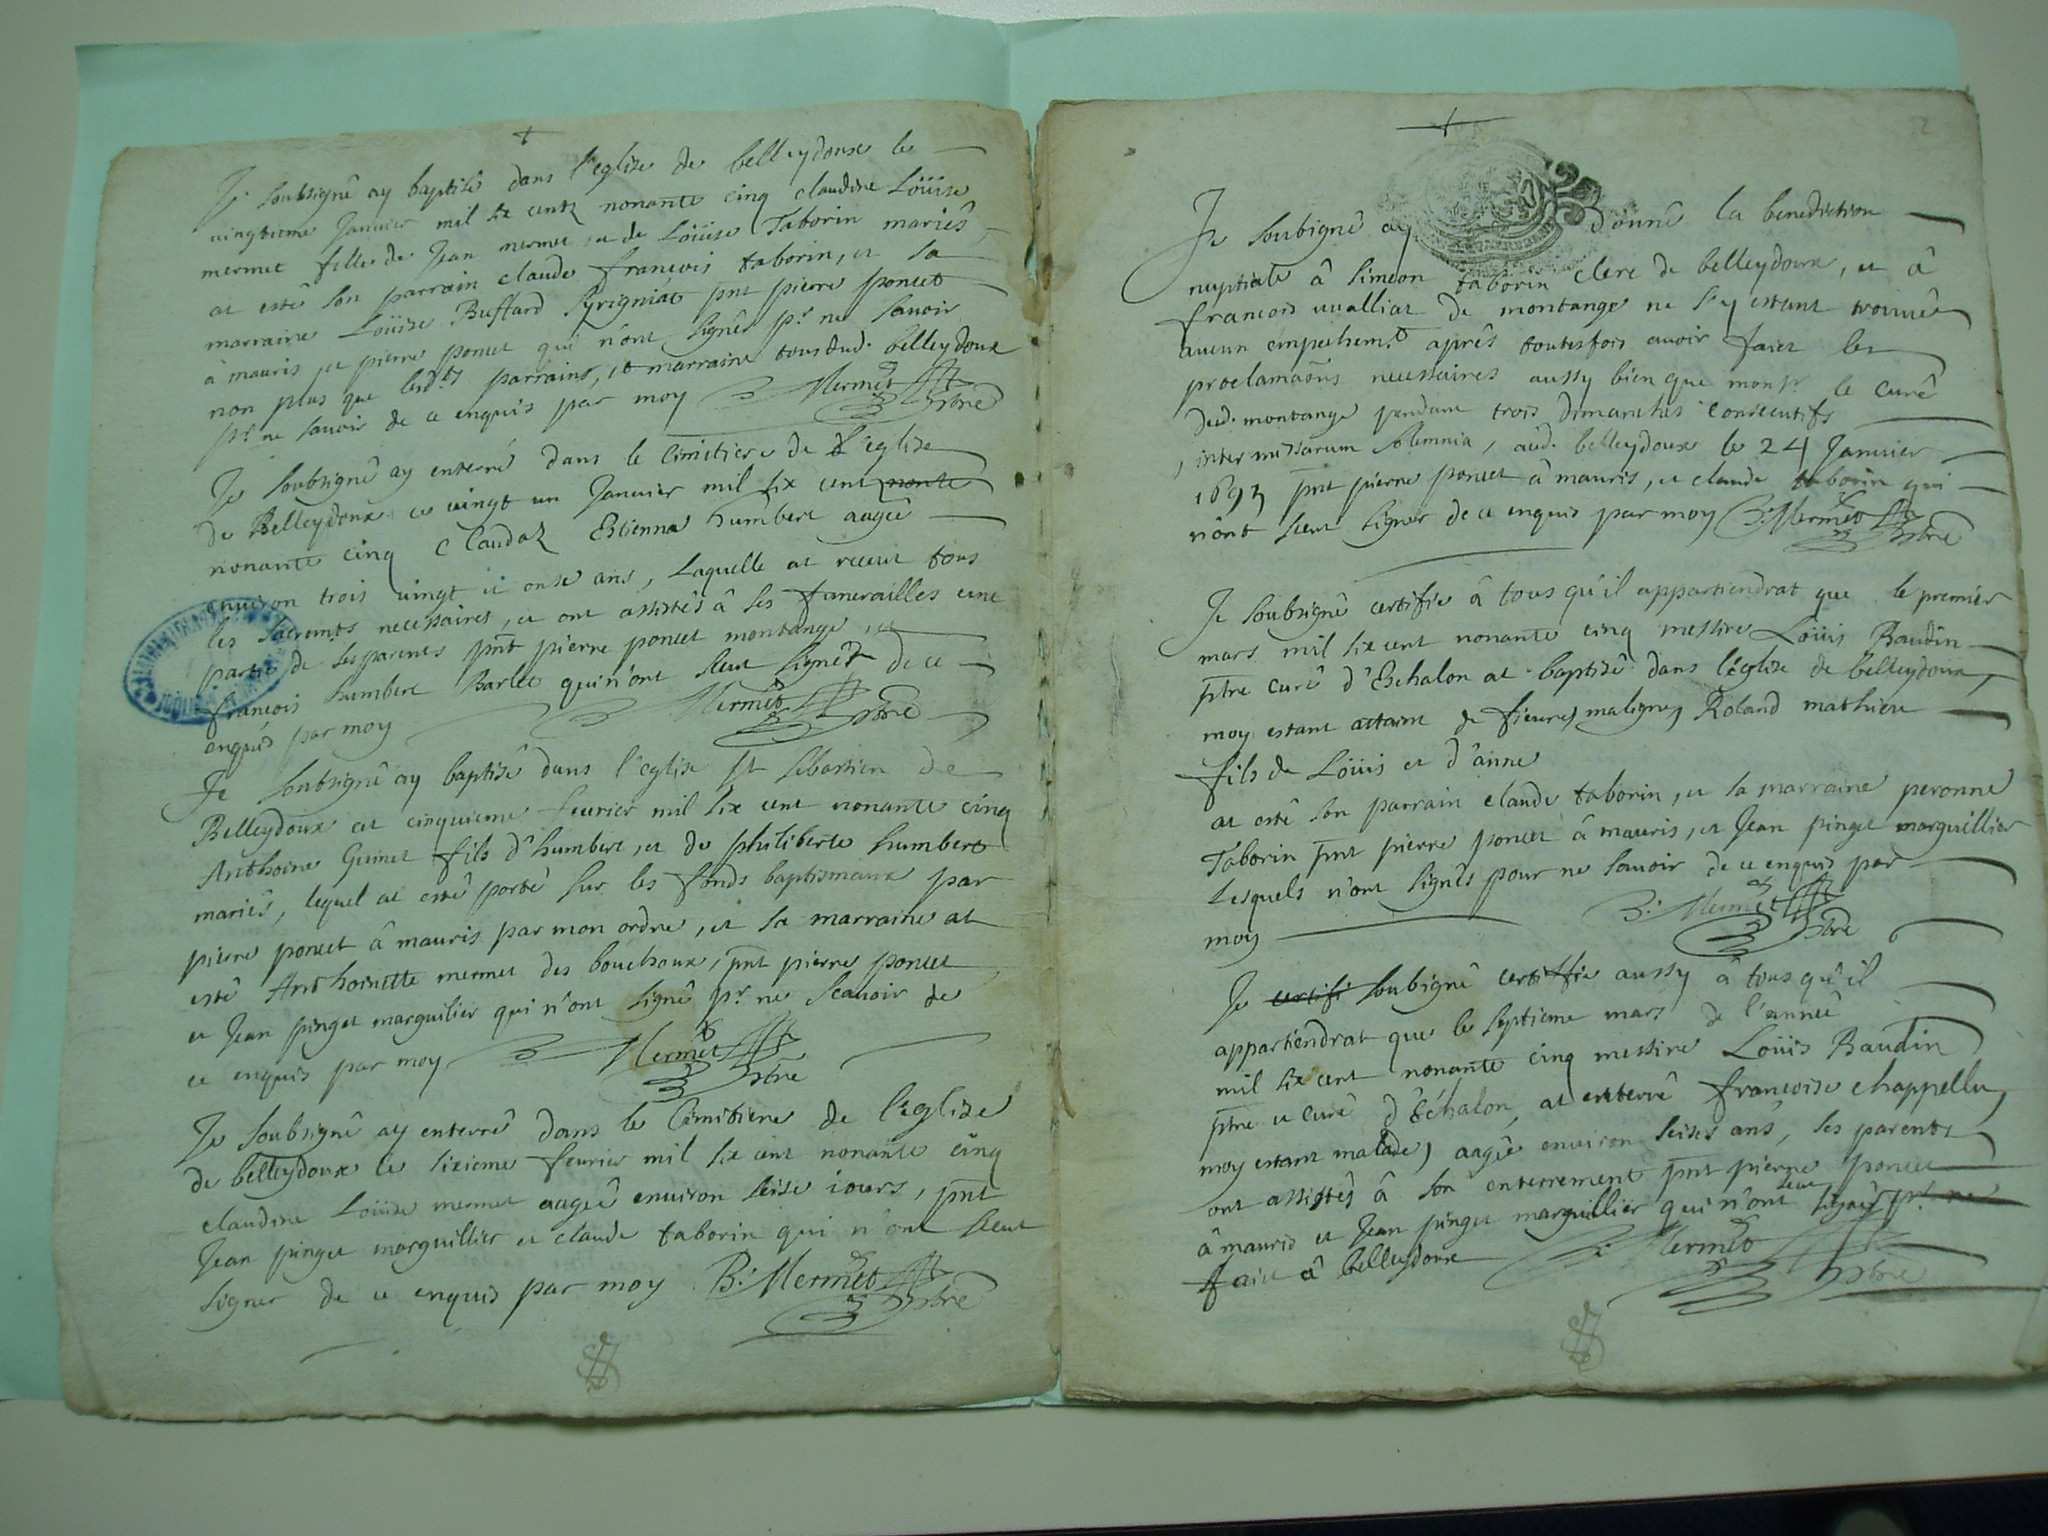 Je soubsigné ay baptisé dans l'eglise de belleydoux le
vingtieme Janvier mil six centz nonante cinq claudine Loüise
mermet fille de Jean mermet et de Loüise Taborin mariés
at esté son parrain claude françois taborin, et sa
marraine Loüise Buffard pnt pierre poncet
à mauris et pierre poncet qui n'ont signés pr. ne savoir
non plus que lesd.ts parrains, et marraine tousdud. belleydoux
pr. ne savoir de ce enquis par moy Mermet ptre
Je soubsigné ay enterré dans le Cimitiere de l'eglise
de Belleydoux ce vingt un Janvier mil six cent nonte
nonante cinq Claudaz Estienna humbert aagée
environ trois vingt et onse ans, Laquelle at receut tous
les sacremts necessaires, et ont assistés à ses funerailles une
partie de ses parents pnt pierre poncet montange, et
françois humbert Barlet qui n'ont sceut signér de ce
enquis par moy Mermet ptre
Je soubsigné ay baptisé dans l'eglise St sebastien de
Belleydoux cet cinquieme fevrier mil six cent nonante cinq
Anthoine Guinet fils d'humbert, et de philiberte humbert
mariés, lequel at esté porté sur les fonds baptismaux par
pierre poncet à mauris par mon ordre, et sa marraine at
esté Anthoinette mermet des bouchoux, pnt pierre poncet
et Jean pinget marguilier qui n'ont signé pr. ne scavoir de
ce enquis par moy Mermet ptre
Je soubsigné ay enterré dans le Cimitiere de l'eglise
de belleydoux le sixieme fevrier mil six cent nonante cinq
claudine Loüise mermet aagée environ seise iours, pnt
Jean pinget marguillier et claude taborin qui n'ont sceut
signer de ce enquis par moy B. Mermet ptre
2
Je soubsigné ay donné la benediction
nuptiale â simeon taborin clerc de belleydoux, et â
françois vualliat de montange ne s'y estant trouvée
aucun empechemt après toutesfois avoir faict les
proclamaõns necessaires aussy bien que monsr le curé
dud. montange pendant trois dimanches consecutifs
inter missarum solemnia, aud. belleydoux le 24 Janvier
1695 pnt pierre poncet â mauris, et claude taborin qui
n'ont sceut signer de ce enquis par moy B. Mermet ptre
Je soubsigné certifie â tous qu'il appartiendrat que le premier
mars mil six cent nonante cinq messire Loüis Baudin
ptre curé d'Eschalon at baptisé dans l'église de belleydoux,
moy estant attaint de fievres malignes Roland mathieu
fils de Loüis et d'anne
at esté son parrain claude taborin, et sa marraine peronne
Taborin pnt pierre poncet â mauris, et Jean pinget marguillier
Lesquels n'ont signés pour ne savoir de ce enquis par
moy B. Mermet ptre
Je certifi soubsigné certiffie aussy â tous qu'il
appartiendrat que le septieme mars de l'année
mil six cent nonante cinq messire Loüis Baudin
ptre et curé d'Echalon, at enterré françoise chappellu,
moy estant malade, aagée environ seises ans, ses parents
ont assistés â son enterrement pnt pierre poncet
â mauris et Jean pinget marguillier qui n'ont sceut signer pr. ne
faict â belleydoux B. Mermet ptre